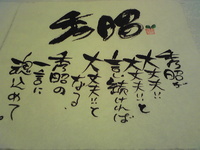 秀昭
秀昭が
大丈夫!!
大丈夫!!と
言い続ければ
大丈夫!!と
なる
秀昭の
一言に
魂込めて。